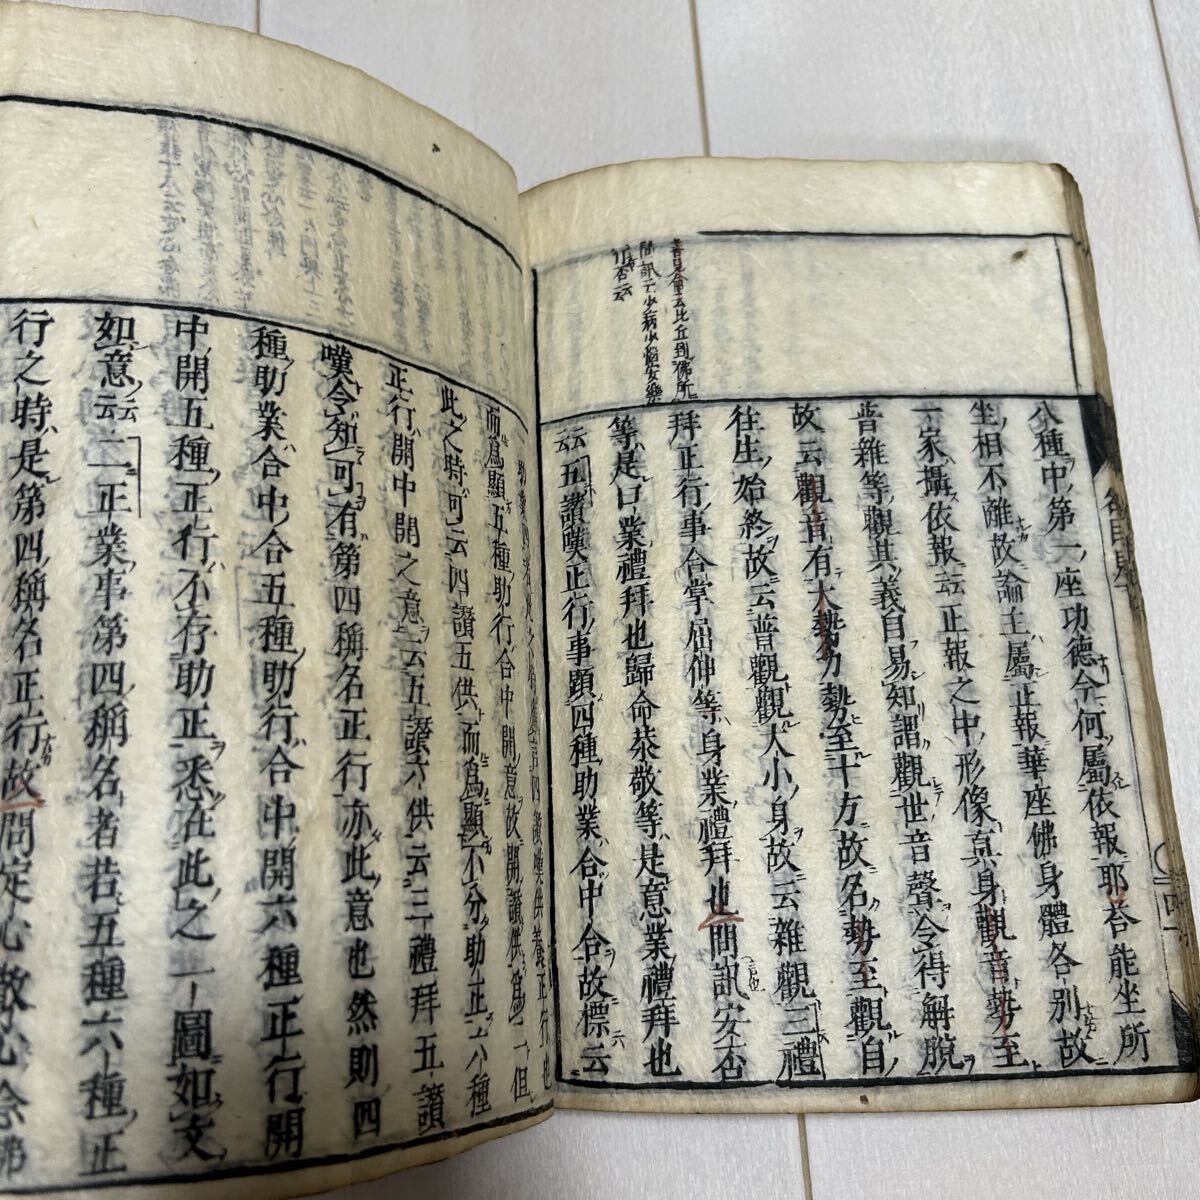 善見會云比丘到佛所
問訊云少病少惱安樂
行否云云
八種中第一座功德今何屬依報耶答能坐所
坐相不離故論主屬正報華座佛身體各別故
一家攝依報云正報之中形像真身觀音勢至
普雜等觀其義自易知謂觀世音聲令得解脫
故云觀音有大勢力勢至十方故名勢至觀自
往生始終故云普觀觀大小身故云雜觀三禮
拜正行事合掌屈伸等身業禮拜也問訊安否
等是口業禮拜也歸命恭敬等是意業禮拜也
云五讚嘆正行事顯四種助業合中合故標云
而為顯五種助行合中開意故開讚供為二但
此之時可云四讚五供而為顯不分助正六種
正行開中開之意云五讚六供云三禮拜五讚
嘆令知可有第四稱名正行亦此意也然則四
種助業合中合五種助行合中開六種正行開
中開五種正行不存助正悉在此之一圖如文
如意云云二正業事第四稱名者若五種六種正
行之時是第四稱名正行故問定心散心念佛